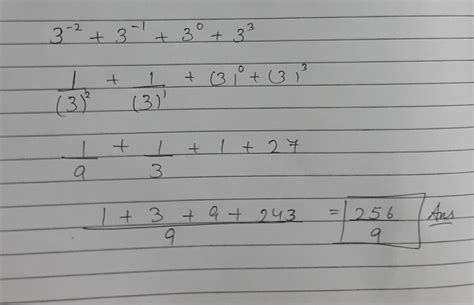 3⁻² + 3⁻¹ + 3⁰ + 3³
1/(3)² + 1/(3)¹ + (3)⁰ + (3)³
1/9 + 1/3 + 1 + 27
(1 + 3 + 9 + 243)/9 = 256/9 Ans